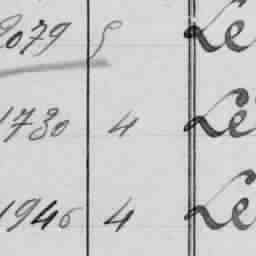 2079 5 Le
1730 4 Le
1946 4 Le